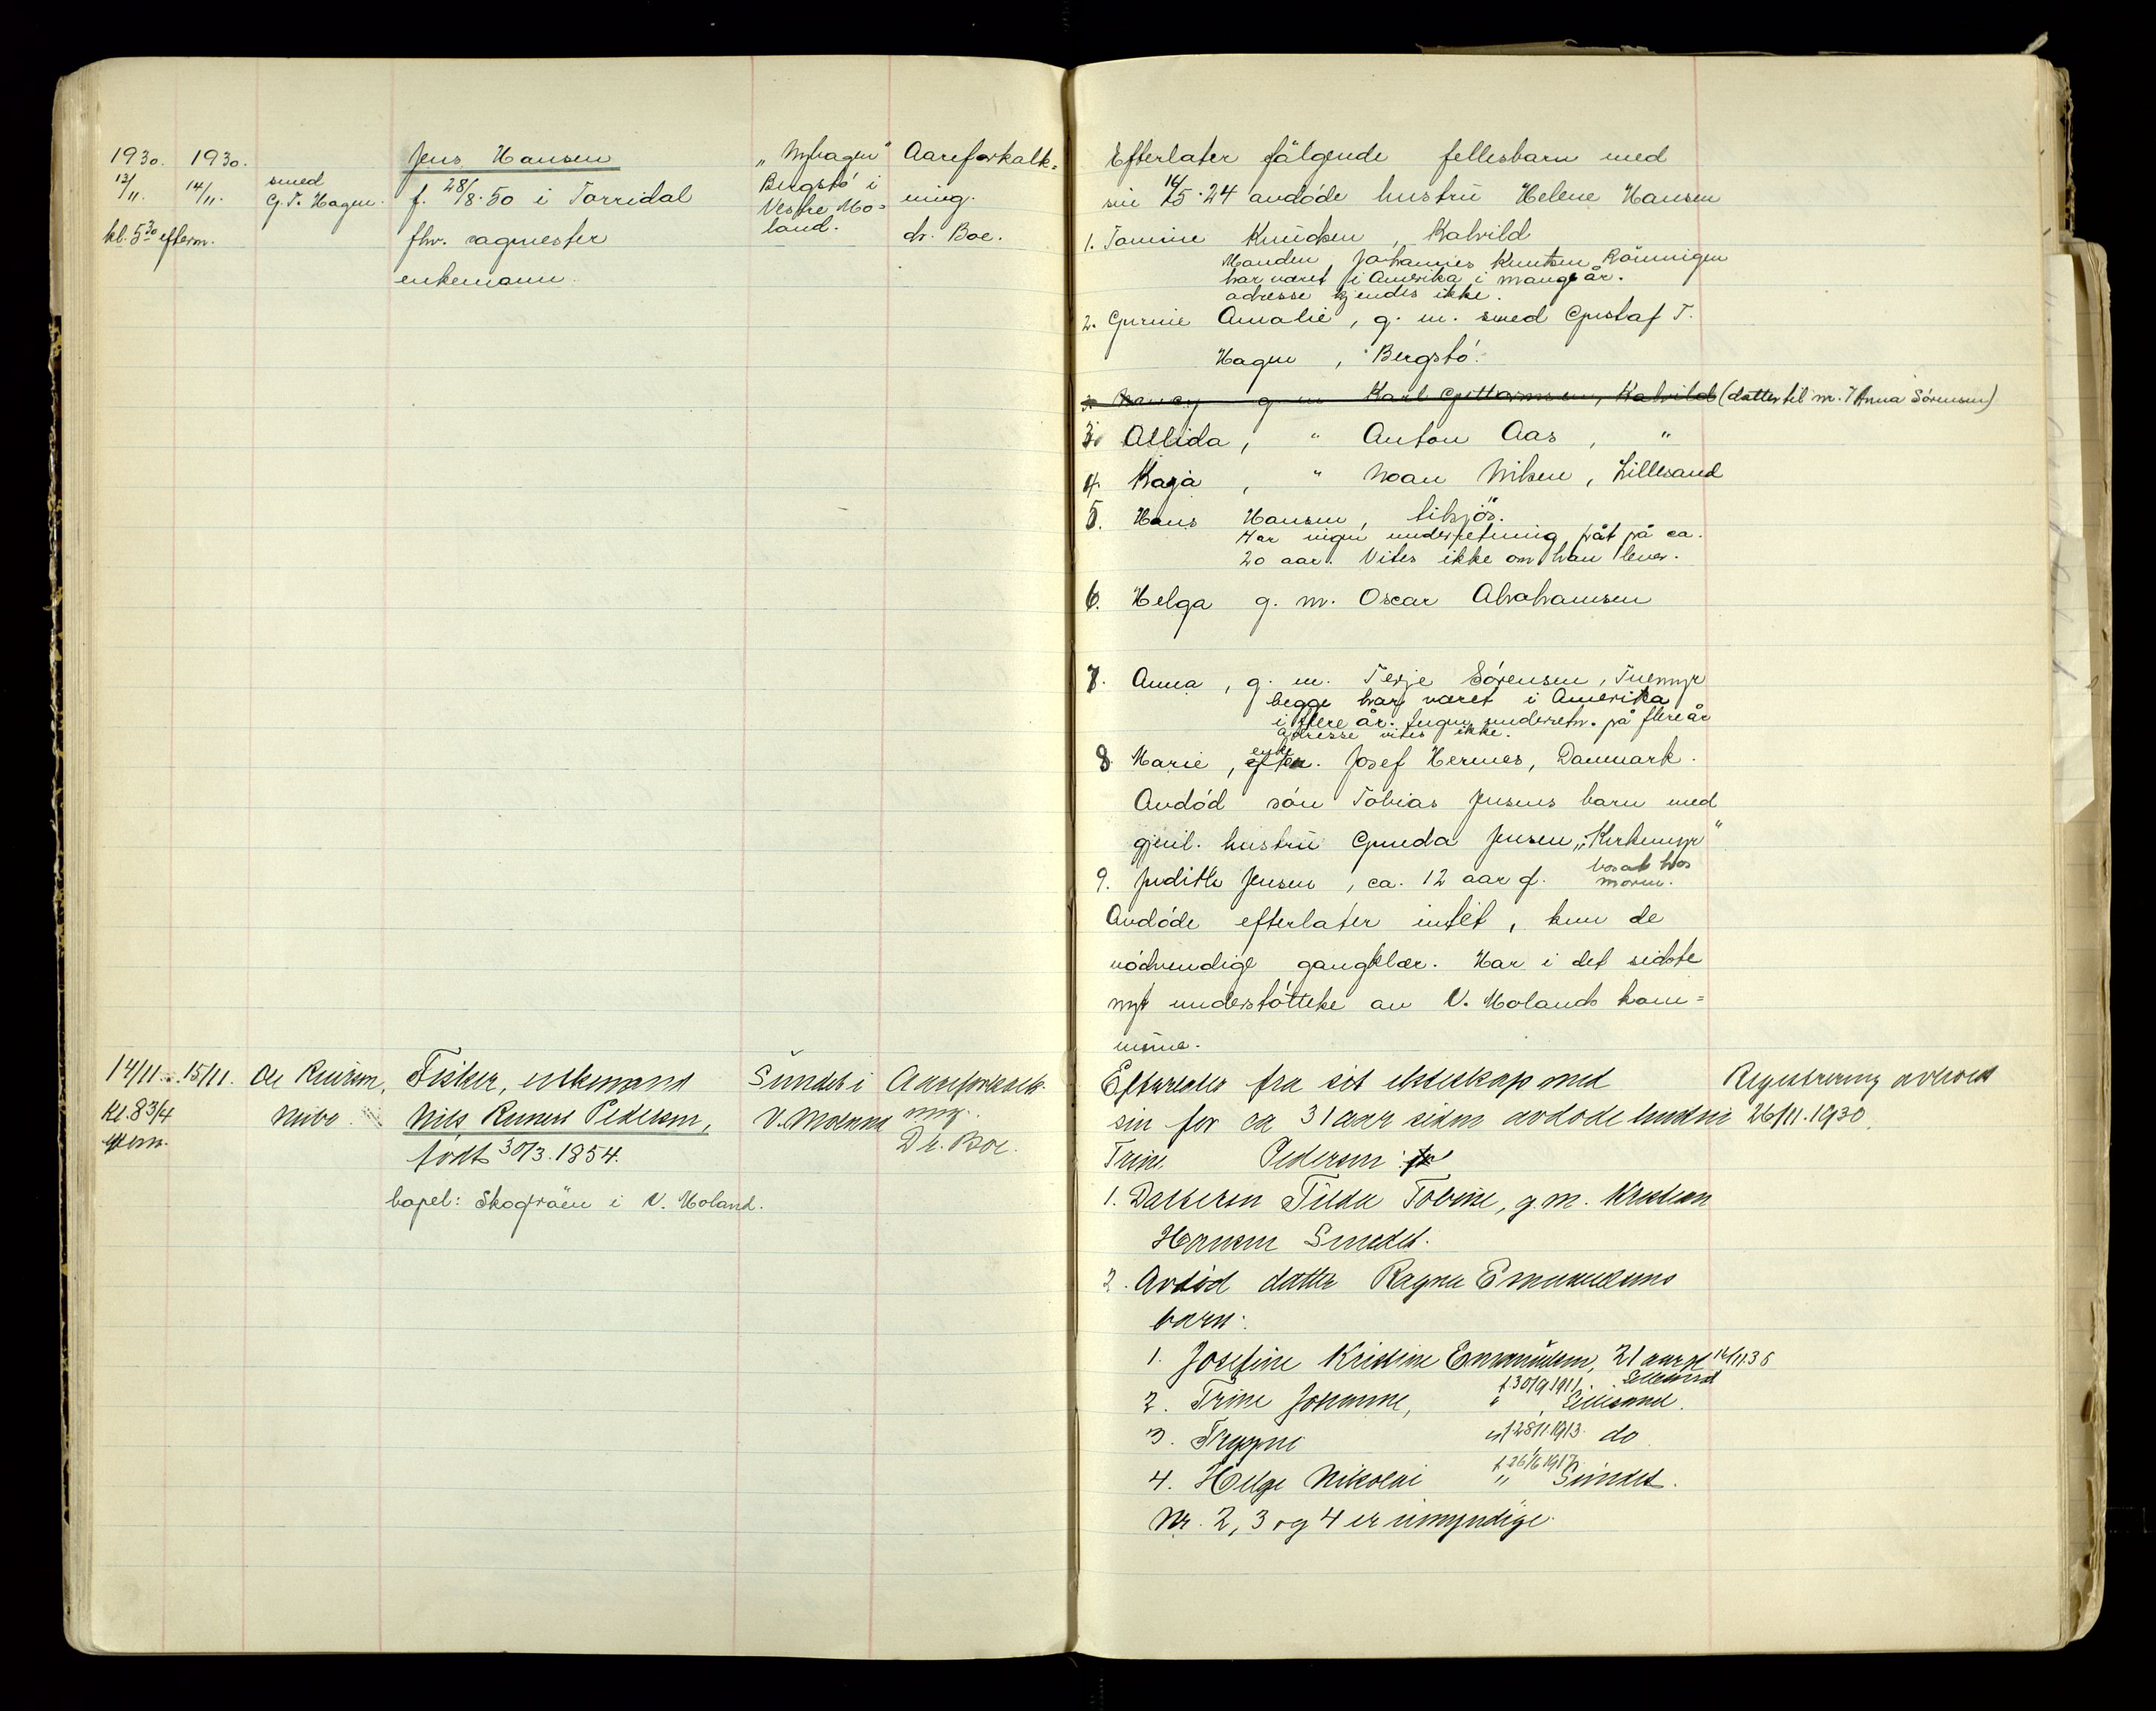 1930. 1930. Jens Hansen „Nyhagen" Aareforkalk=
13/11. 14/11. smed G. T. Hagen. f. 28/8.50 i Torridal Bergstö i Vestre Mo= ning.
kl. 5 30 efterm. fhv. sagmester land. dr. Boe.
enkemann.
Efterlater fölgende fellesbarn med
sin 16/5.24 avdöde hustru Helene Hansen
1. Tomine Knudsen, Kalvild
Manden, Johannes Knutsen Rönningen
har været i Amerika i mange år.
adresse kjendes ikke.
2. Gurine Amalie, g. m. smed Gustaf T.
Hagen, Bergstö.
3. Nancy g m Karl Guttormsen, Kalvild (datter til nr. 7 Anna Sörensen)
3. Allida, " Anton Aas, "
4. Kaja, " Noan Nilsen, Lillesand
5. Hans Hansen, tilsjös.
Har ingen underretning fåt på ca.
20 aar. Vites ikke om han lever.
6. Helga g. m. Oscar Abrahamsen
7. Anna, g. m. Terje Sörensen, Tuemyr
begge har været i Amerika
i flere år. Ingen underretn. på flere år
adresse vites ikke.
8 Marie, enke efter. Josef Hermes, Danmark.
Avdöd sön Tobias Jensens barn med
gjenl. hustru Gunda Jensen, „Kirkemyr"
9. Judith Jensen, ca. 12 aar g. bosat hos moren.
Avdöde efterlater intet, kun de
nödvendige gangklær. Har i det sidste
nyt understöttelse av V. Molands kom=
mune.
14/11. 15/11. Ole Fisker, enkemand Sundet i Aareforkalk-
Kl. 8 3/4 Nibo Nils Pedersen, V. Moland ning.
födt 30/3.1854. Dr. Boe.
bopel: Skogröen i V. Moland.
Efterlater fra sit ekteskap med Registrering avholdt
sin for ca 31 aar siden avdöde hustru 26/11.1930.
Trine Pedersen:
1. Datteren Tilda Tobine, g. m. Kristian
Hansen Sundet.
2. Avdöd datter Ragna Emanuelsens
barn:
1. Josefine Kristine Emanuelsen, 21 aar
Lillesand
2. Trine Johanne, f 30/9 1911 " Lillesand.
3. Trygve f 28/1 1913 do
4. Helge Nikolai f 26/6 1917 " Sundet.
Nr. 2, 3 og 4 er umyndige.